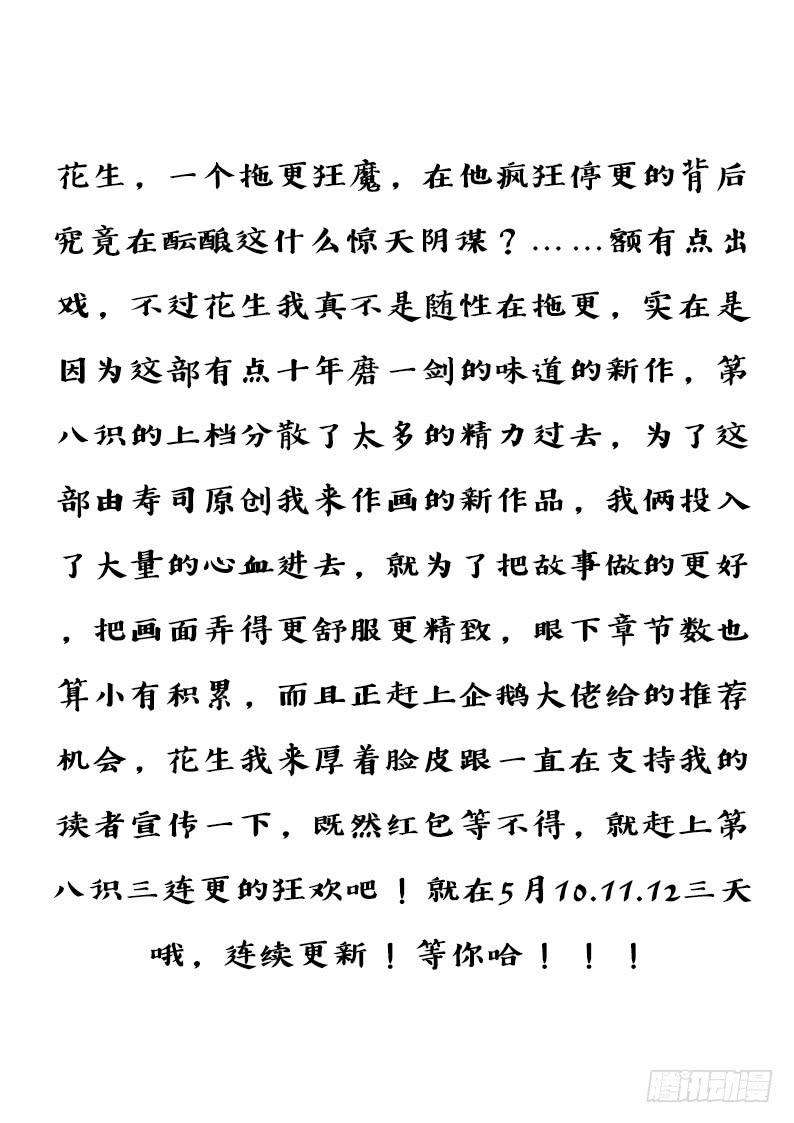 花生，一个拖更狂魔，在他疯狂停更的背后
究竟在酝酿这什么惊天阴谋？……额有点出
戏，不过花生我真不是随性在拖更，实在是
因为这部有点十年磨一剑的味道的新作，第
八识的上档分散了太多的精力过去，为了这
部由寿司原创我来作画的新作品，我俩投入
了大量的心血进去，就为了把故事做的更好
，把画面弄得更舒服更精致，眼下章节数也
算小有积累，而且正赶上企鹅大佬给的推荐
机会，花生我来厚着脸皮跟一直在支持我的
读者宣传一下，既然红包等不得，就赶上第
八识三连更的狂欢吧！就在5月10.11.12三天
哦，连续更新！等你哈！！！
腾讯动漫